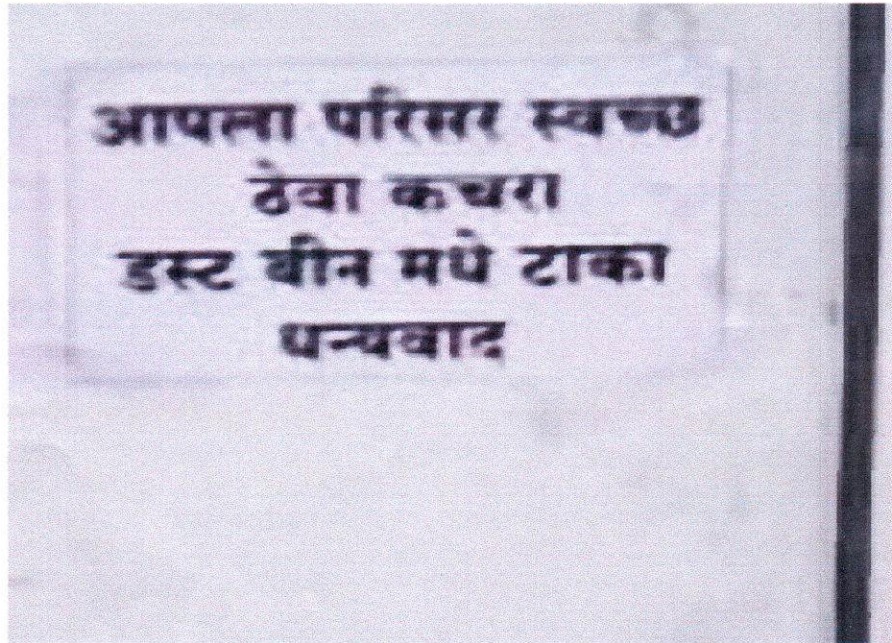 आपला परिसर स्वच्छ
ठेवा कचरा
डस्ट बीन मधे टाका
धन्यवाद